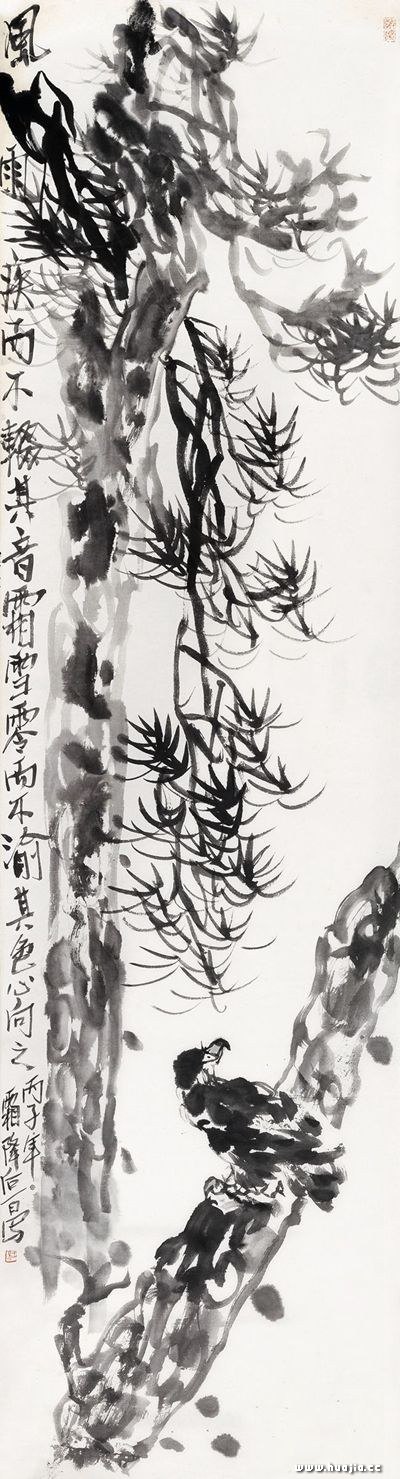 風雨疾而不輟其音霜雪零而不渝其色心向之
丙子年
霜降后一日写
www.huajia.cc